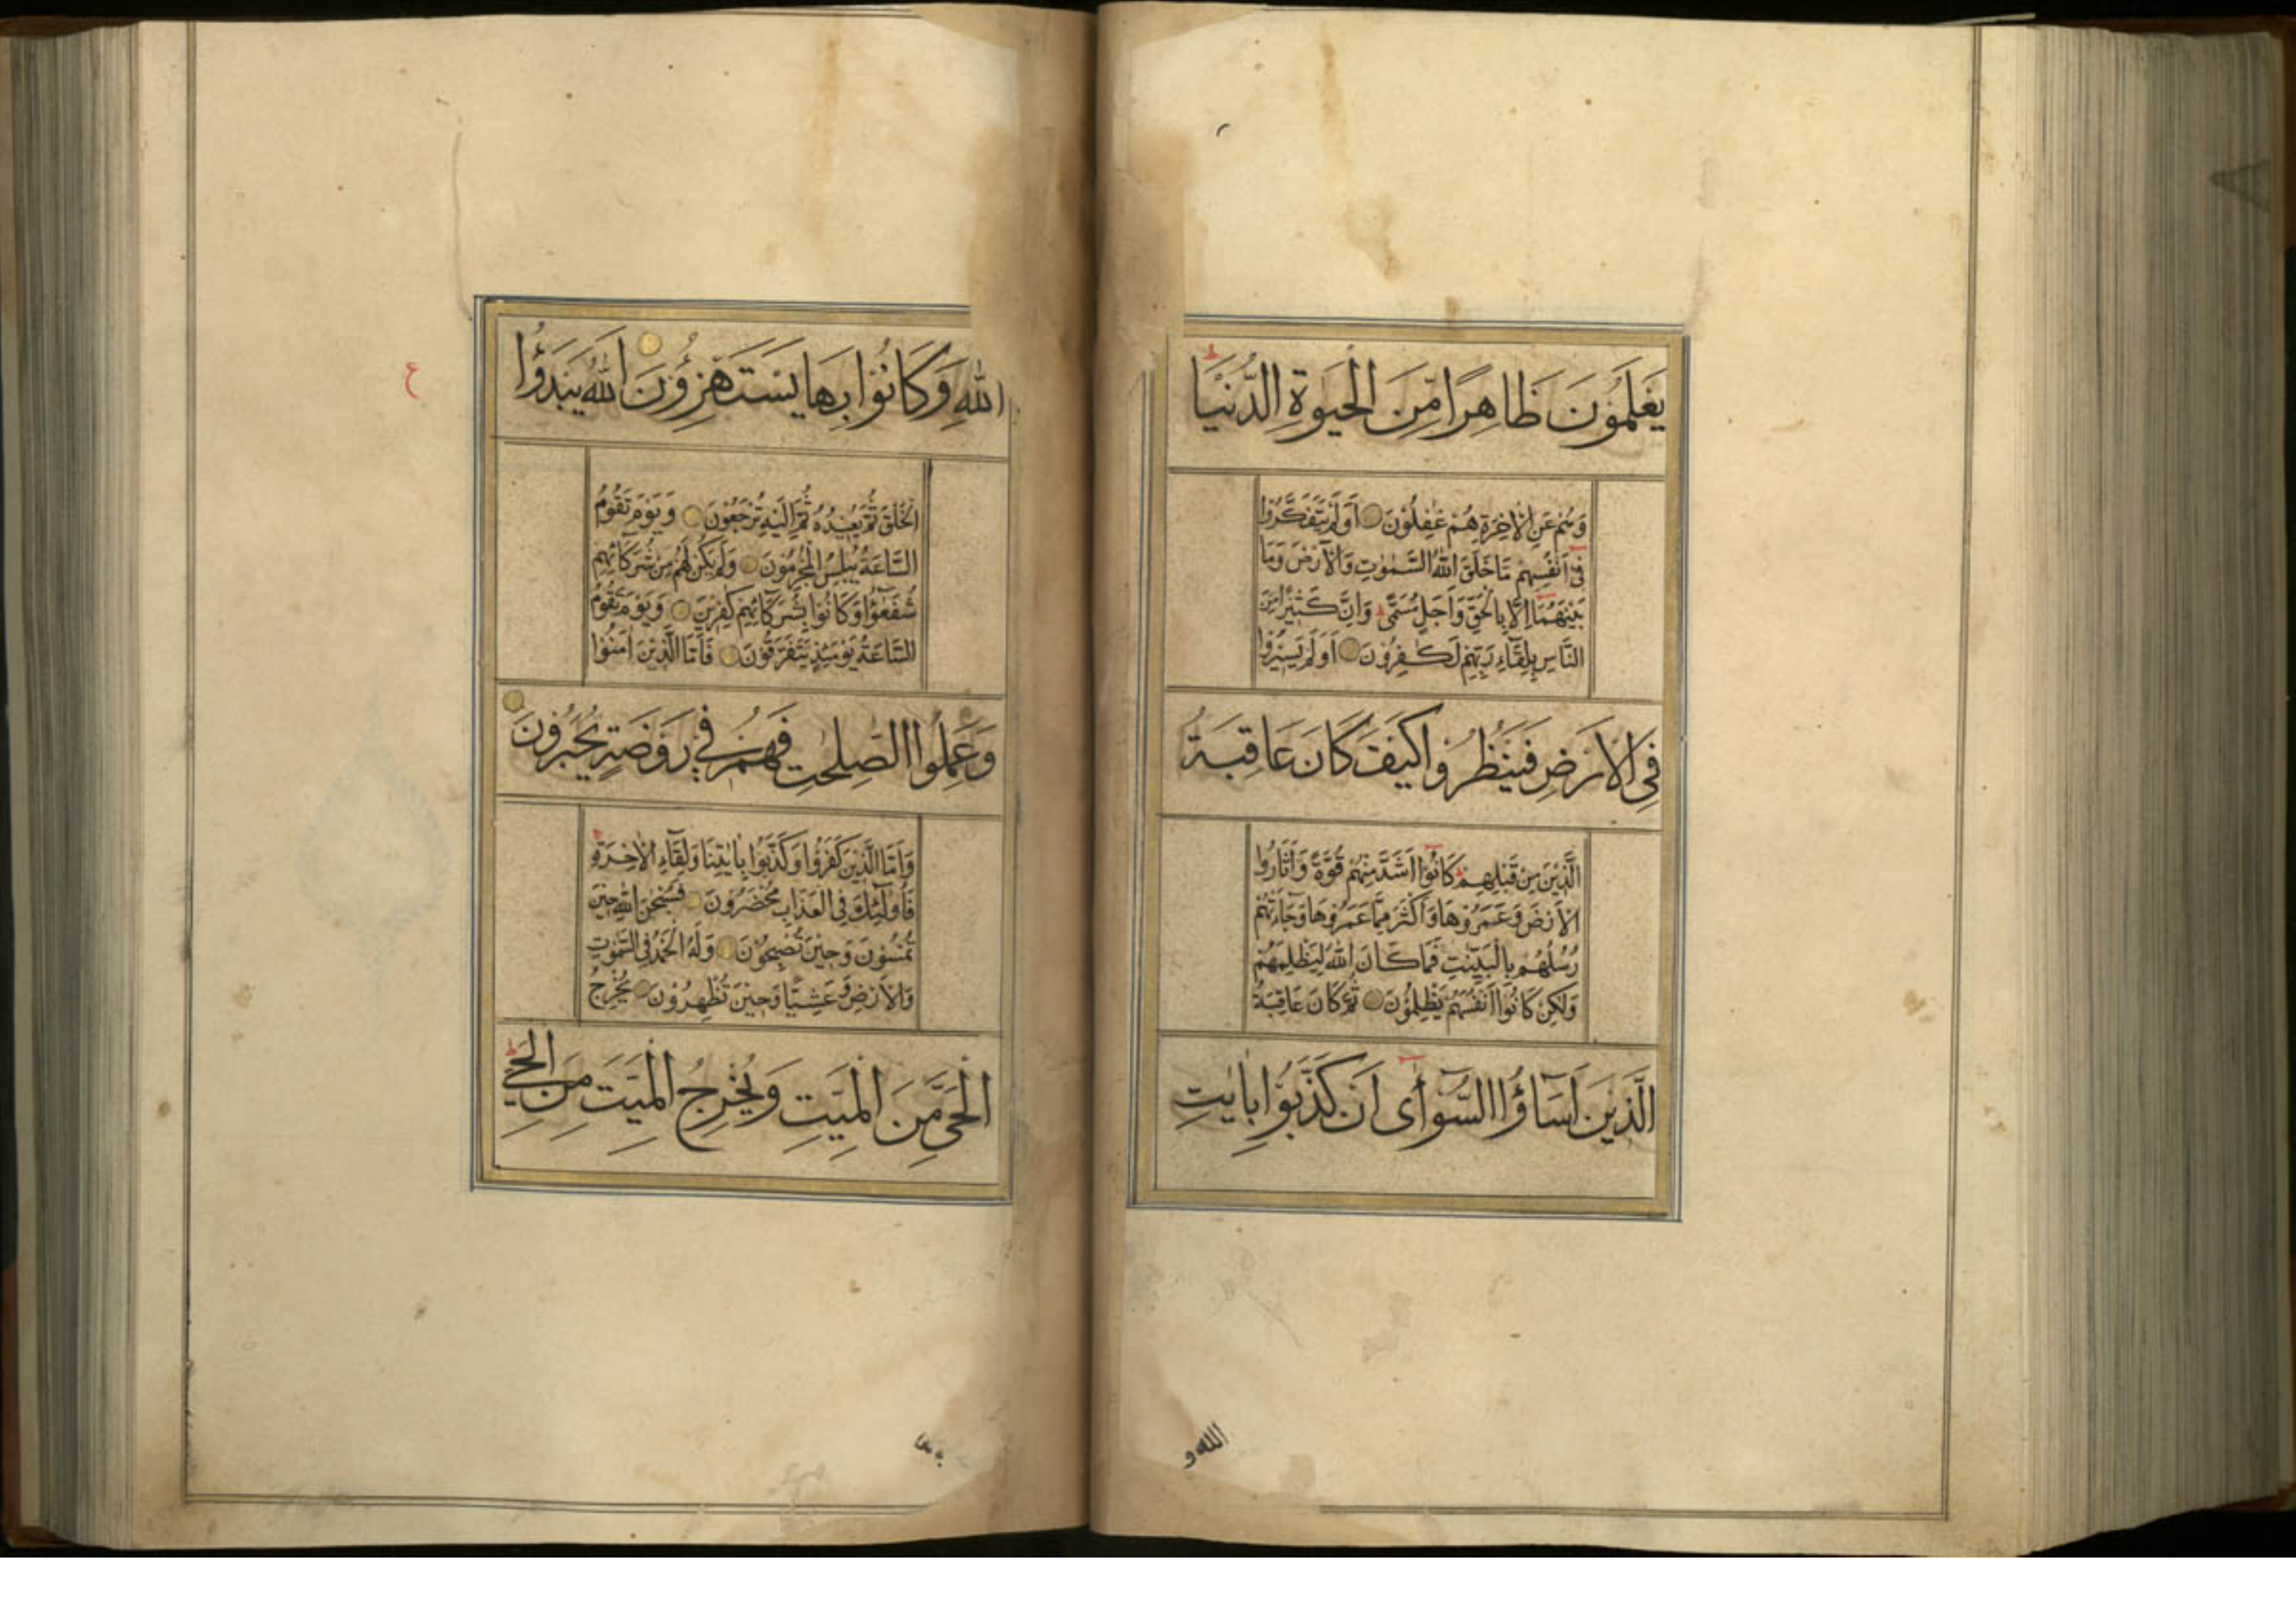 يَعْلَمُونَ ظَاهِرًا مِّنَ الْحَيٰوةِ الدُّنْيَا ط
وَهُمْ عَنِ الْاٰخِرَةِ هُمْ غٰفِلُوْنَ اَوَلَمْ يَتَفَكَّرُوْا
فِىْ اَنْفُسِهِمْ مَا خَلَقَ اللّٰهُ السَّمٰوٰتِ وَالْاَرْضَ وَمَا
بَيْنَهُمَا اِلَّا بِالْحَقِّ وَاَجَلٍ مُّسَمًّى ط وَاِنَّ كَثِيْرًا مِّنَ
النَّاسِ بِلِقَآءِ رَبِّهِمْ لَكٰفِرُوْنَ اَوَلَمْ يَسِيْرُوْا
فِى الْاَرْضِ فَيَنْظُرُوْا كَيْفَ كَانَ عَاقِبَةُ
الَّذِيْنَ مِنْ قَبْلِهِمْ ط كَانُوْا اَشَدَّ مِنْهُمْ قُوَّةً وَّاَثَارُوا
الْاَرْضَ وَعَمَرُوْهَا وَاَكْثَرَ مِمَّا عَمَرُوْهَا وَجَآءَتْهُمْ
رُسُلُهُمْ بِالْبَيِّنٰتِ فَمَا كَانَ اللّٰهُ لِيَظْلِمَهُمْ
وَلٰكِنْ كَانُوْا اَنْفُسَهُمْ يَظْلِمُوْنَ ثُمَّ كَانَ عَاقِبَةُ
الَّذِيْنَ اَسَآؤُا السُّوْآٰى اَنْ كَذَّبُوْا بِاٰيٰتِ
الله و
اللّٰهِ وَكَانُوْا بِهَا يَسْتَهْزِؤُنَ اَللّٰهُ يَبْدَؤُا
ع
الْخَلْقَ ثُمَّ يُعِيْدُهُ ثُمَّ اِلَيْهِ تُرْجَعُوْنَ وَيَوْمَ تَقُوْمُ
السَّاعَةُ يُبْلِسُ الْمُجْرِمُوْنَ وَلَمْ يَكُنْ لَّهُمْ مِّنْ شُرَكَآئِهِمْ
شُفَعٰٓؤُا وَكَانُوْا بِشُرَكَآئِهِمْ كٰفِرِيْنَ وَيَوْمَ تَقُوْمُ
السَّاعَةُ يَوْمَئِذٍ يَّتَفَرَّقُوْنَ فَاَمَّا الَّذِيْنَ اٰمَنُوْا
وَعَمِلُوا الصّٰلِحٰتِ فَهُمْ فِىْ رَوْضَةٍ يُّحْبَرُوْنَ
وَاَمَّا الَّذِيْنَ كَفَرُوْا وَكَذَّبُوْا بِاٰيٰتِنَا وَلِقَآئِ الْاٰخِرَةِ
فَاُولٰٓئِكَ فِى الْعَذَابِ مُحْضَرُوْنَ فَسُبْحٰنَ اللّٰهِ حِيْنَ
تُمْسُوْنَ وَحِيْنَ تُصْبِحُوْنَ وَلَهُ الْحَمْدُ فِى السَّمٰوٰتِ
وَالْاَرْضِ وَعَشِيًّا وَّحِيْنَ تُظْهِرُوْنَ يُخْرِجُ
الْحَىَّ مِنَ الْمَيِّتِ وَيُخْرِجُ الْمَيِّتَ مِنَ الْحَىِّ ط